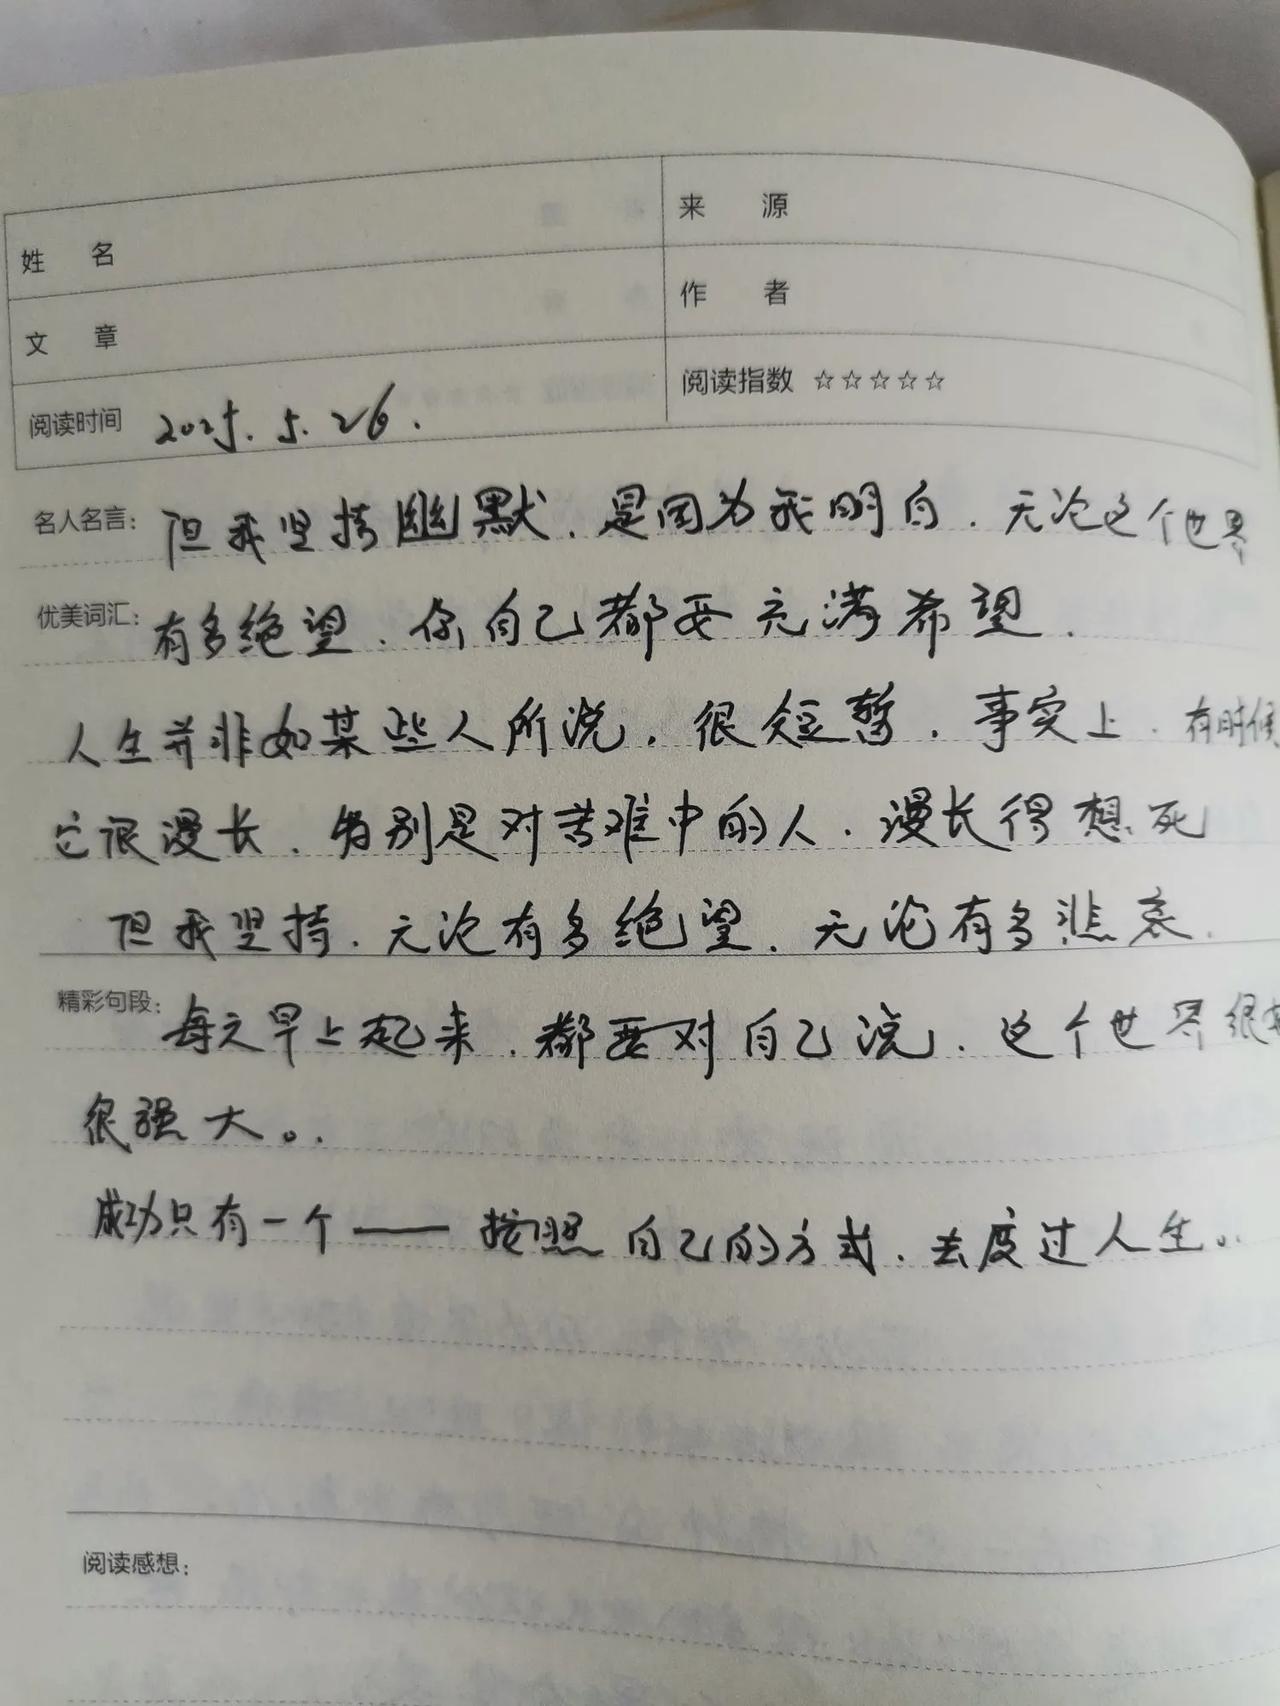 姓 名
来 源
文 章
作 者
阅读时间 2025.5.26.
阅读指数 ☆☆☆☆☆
名人名言: 但我坚持幽默,是因为我明白,无论这个世界
优美词汇: 有多绝望,你自己都要充满希望,
人生并非如某些人所说,很短暂,事实上,有时候
它很漫长,特别是对苦难中的人,漫长得想死
但我坚持,无论有多绝望,无论有多悲哀,
精彩句段: 每天早上起来,都要对自己说,这个世界很
很强大。
成功只有一个——按照自己的方式,去度过人生。
阅读感想: